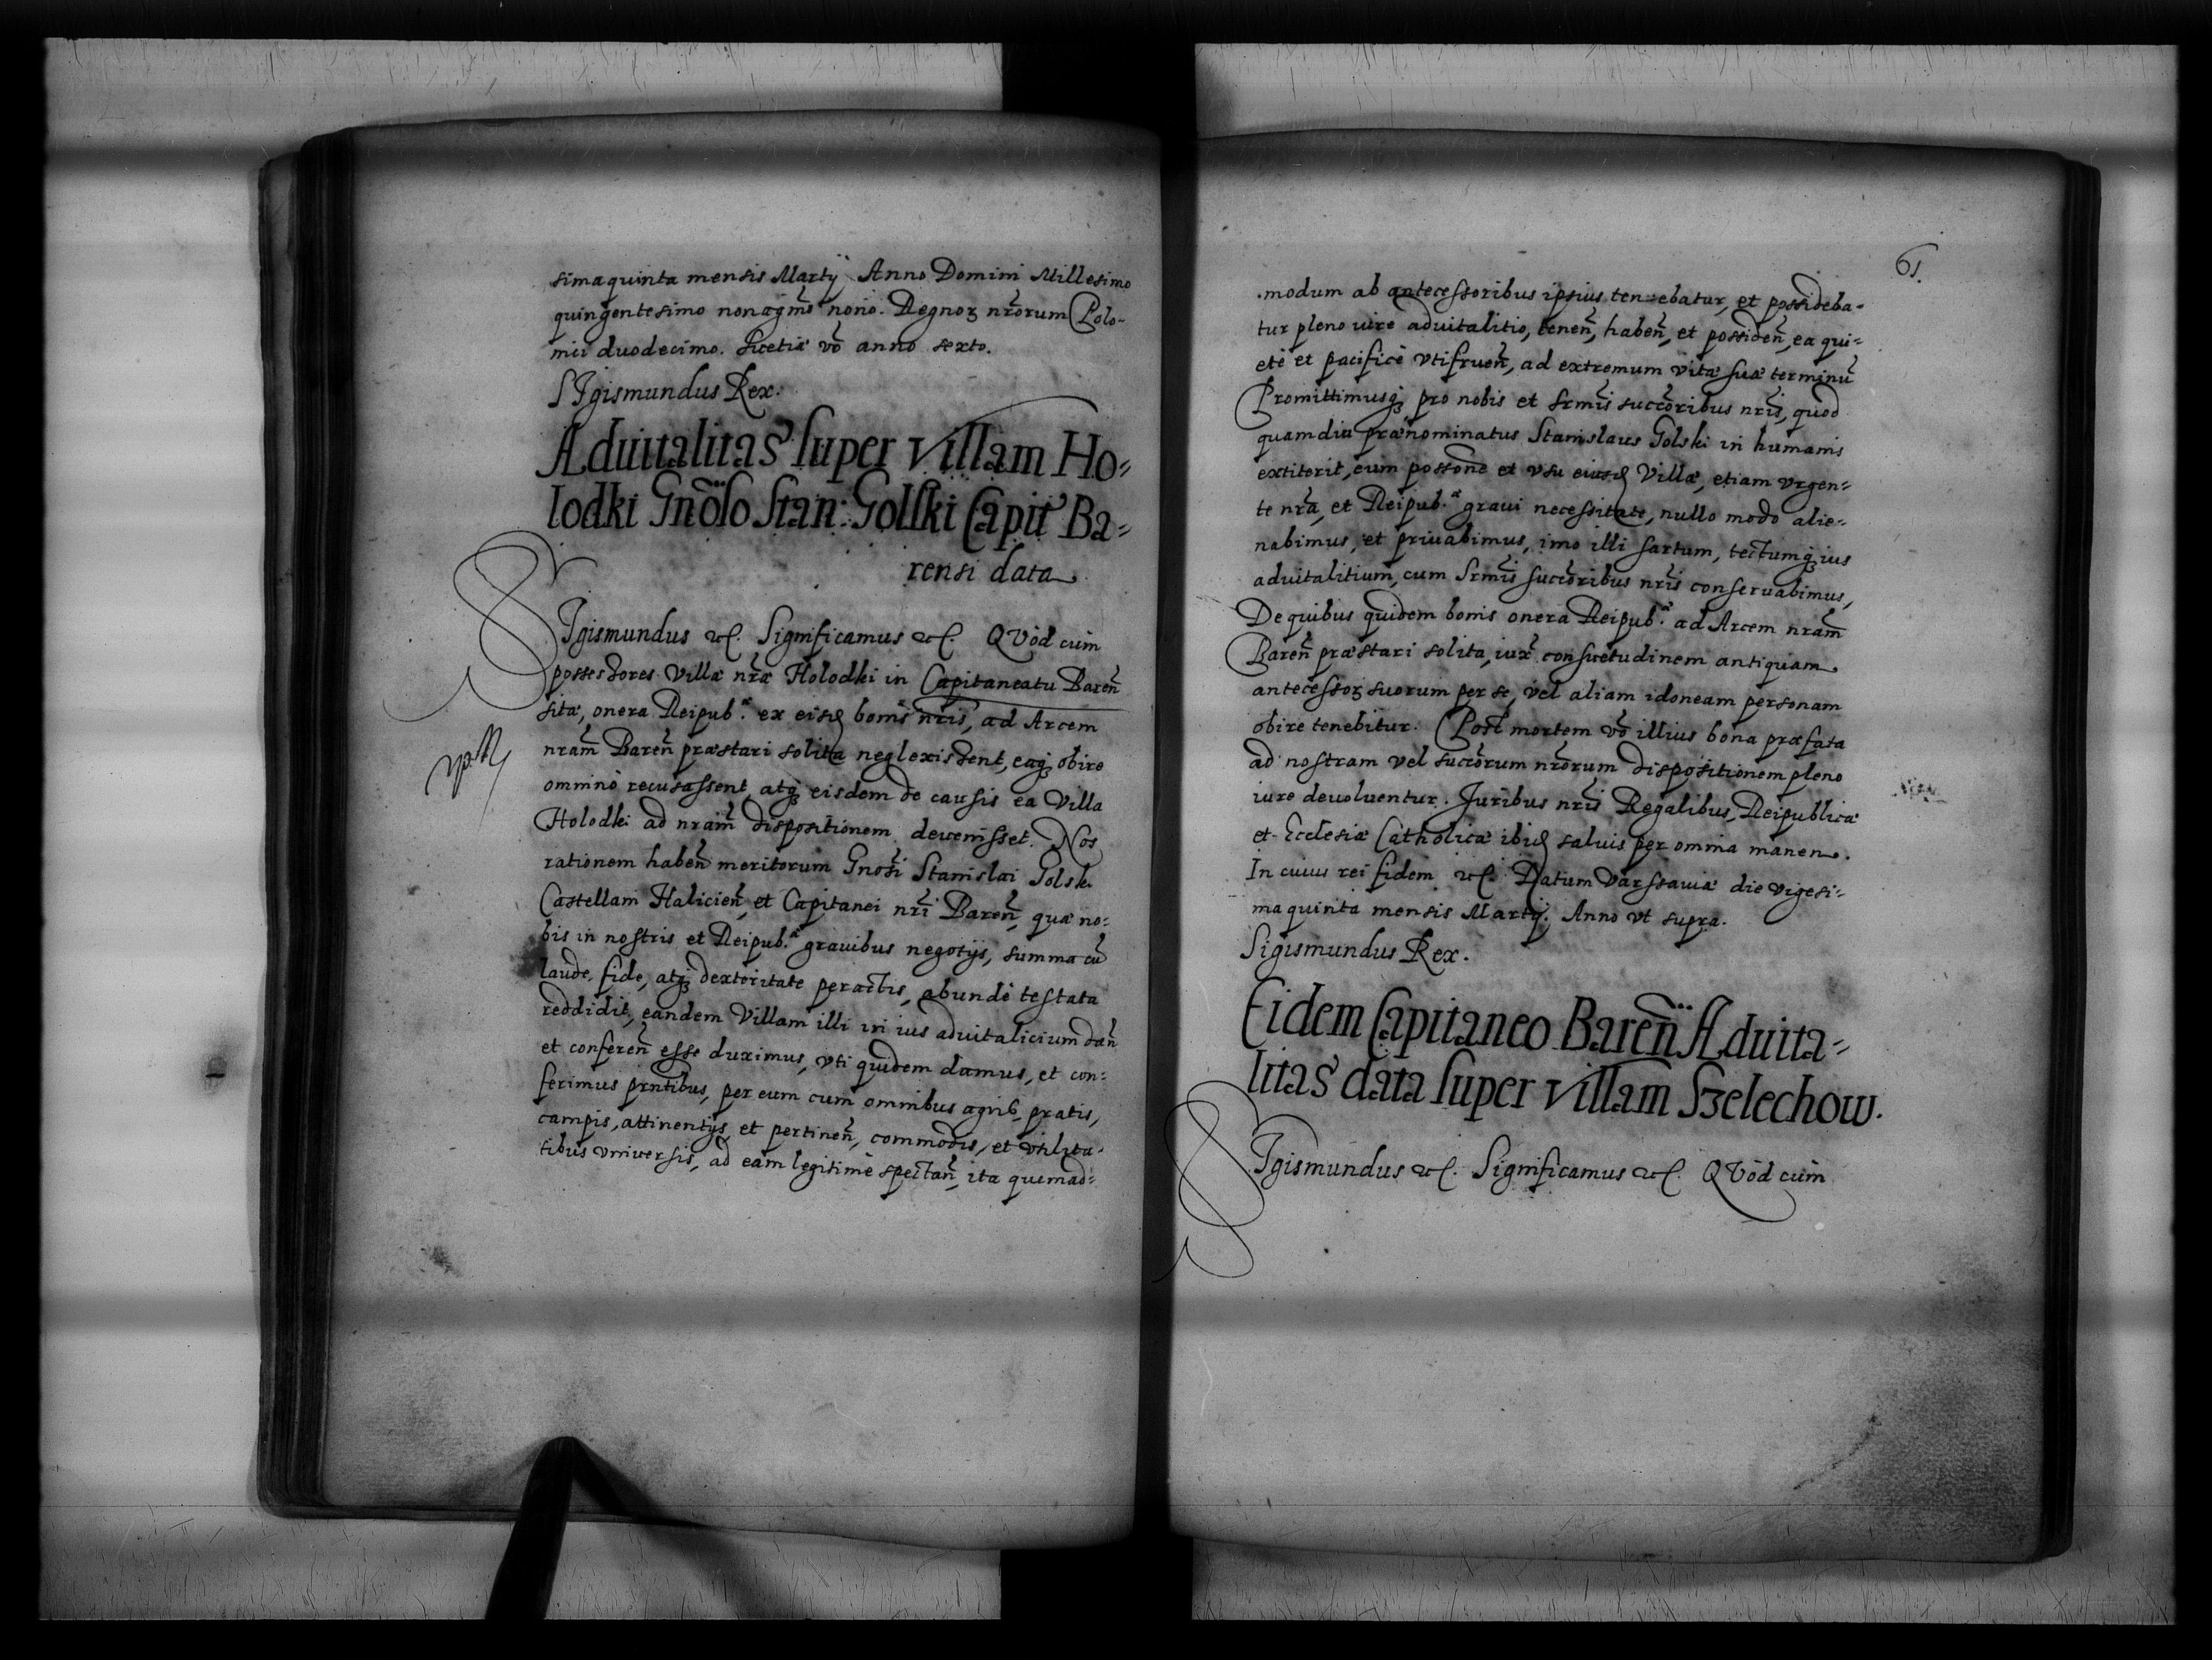 simaquinta mensis Martij Anno Domini Millesimo
quingentesimo nonagmo nono. Regnoꝝ nrorum Polo-
nici duodecimo. Suetiæ vo anno sexto.
SIgismundus Rex.
Aduitalitas super villam Ho-
lodki Gnoso Stan: Golski Capit Ba-
rensi data
SIgismundus etc. Significamus etc. QVod cum
possessores villæ nræ Holodki in Capitaneatu Baren
sitæ, onera Reipub.æ ex eisd bonis nris, ad Arcem
nram Baren præstari solita neglexissent, eaqꝫ obire
omnino recusassent, atqꝫ eisdem de causis ea Villa
Holodki ad nram dispositionem deuenisset. Nos
rationem haben meritorum Gnosi Stanislai Golski
Castellani Halicien, et Capitanei nri Baren, quæ no-
bis in nostris et Reipub.æ grauibus negotijs, summa cu
laude, fide, atqꝫ dexteritate peractis, abunde testata
reddidit, eandem Villam illi in ius aduitalicium dan
et conferen esse duximus, vti quidem damus, et con-
ferimus prntibus, per eum cum omnibus agris, pratis,
campis, attinentijs et pertinen, commodis, et vtilita-
tibus vniuersis, ad eam legitime spectan, ita quemad-
61.
modum ab antecessoribus ipsius tenebatur, et possideba-
tur pleno iure aduitalitio, tenen, haben, et possiden, ea qui-
ete et pacifice vtifruen, ad extremum vitæ suæ terminu
Promittimusqꝫ pro nobis et Srmis succoribus nris, quod
quamdiu prænominatus Stanislaus Golski in humanis
extiterit, eum possone et vsu eiusd Villæ, etiam vrgen-
te nra, et Reipub.æ graui necessitate, nullo modo alie-
nabimus, et priuabimus, imo illi sartum, tectumqꝫ ius
aduitalitium, cum Srmis succoribus nris conseruabimus,
De quibus quidem bonis onera Reipub.æ ad Arcem nram
Baren præstari solita, iux consuetudinem antiquam
antecessoꝝ suorum per se, vel aliam idoneam personam
obire tenebitur. Post mortem vo illius bona præfata
ad nostram vel succorum nrorum dispositionem pleno
iure deuoluentur. Iuribus nris Regalibus, Reipublicæ
et Ecclesiæ Catholicæ ibid saluis per omnia manen.
In cuius rei fidem etc. Datum Varssauiæ die vigesi-
ma quinta mensis Martij. Anno vt supra.
Sigismundus Rex.
Eidem Capitaneo Baren Aduita-
litas data super villam Szelechow.
SIgismundus etc. Significamus etc. QVod cum